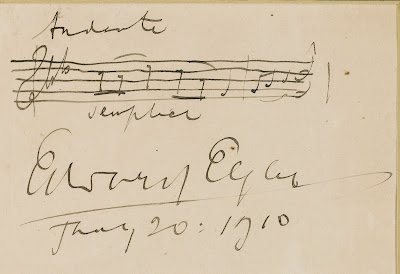 Andante
semplice
Edward Elgar
May 20: 1910